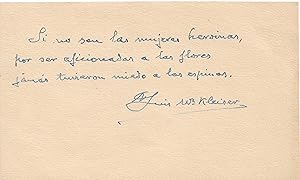 Si no son las mujeres heroinas,
por ser aficionadas a las flores
jamás tuvieron miedo a las espinas.
Luis Mz Kleiser